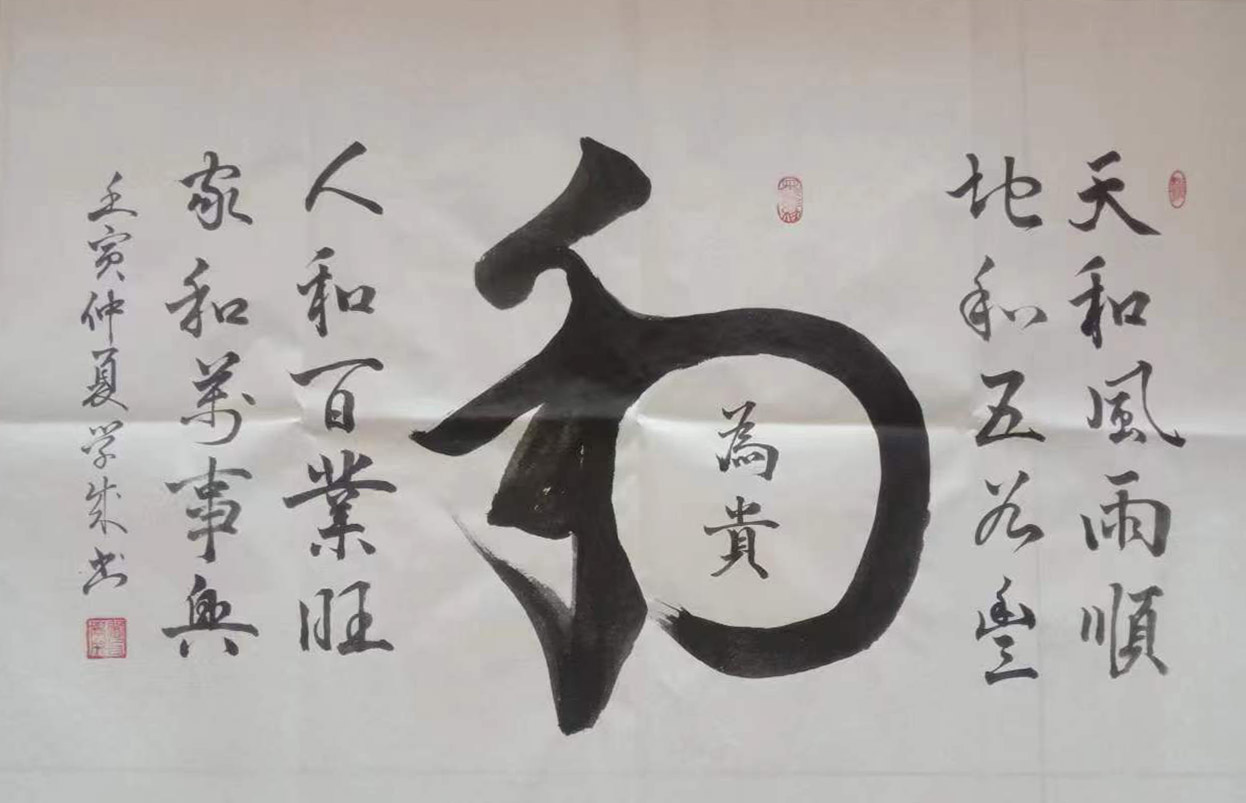 天和風雨順
地和五谷豐
和
為貴
人和百業旺
家和萬事興
壬寅仲夏学成书